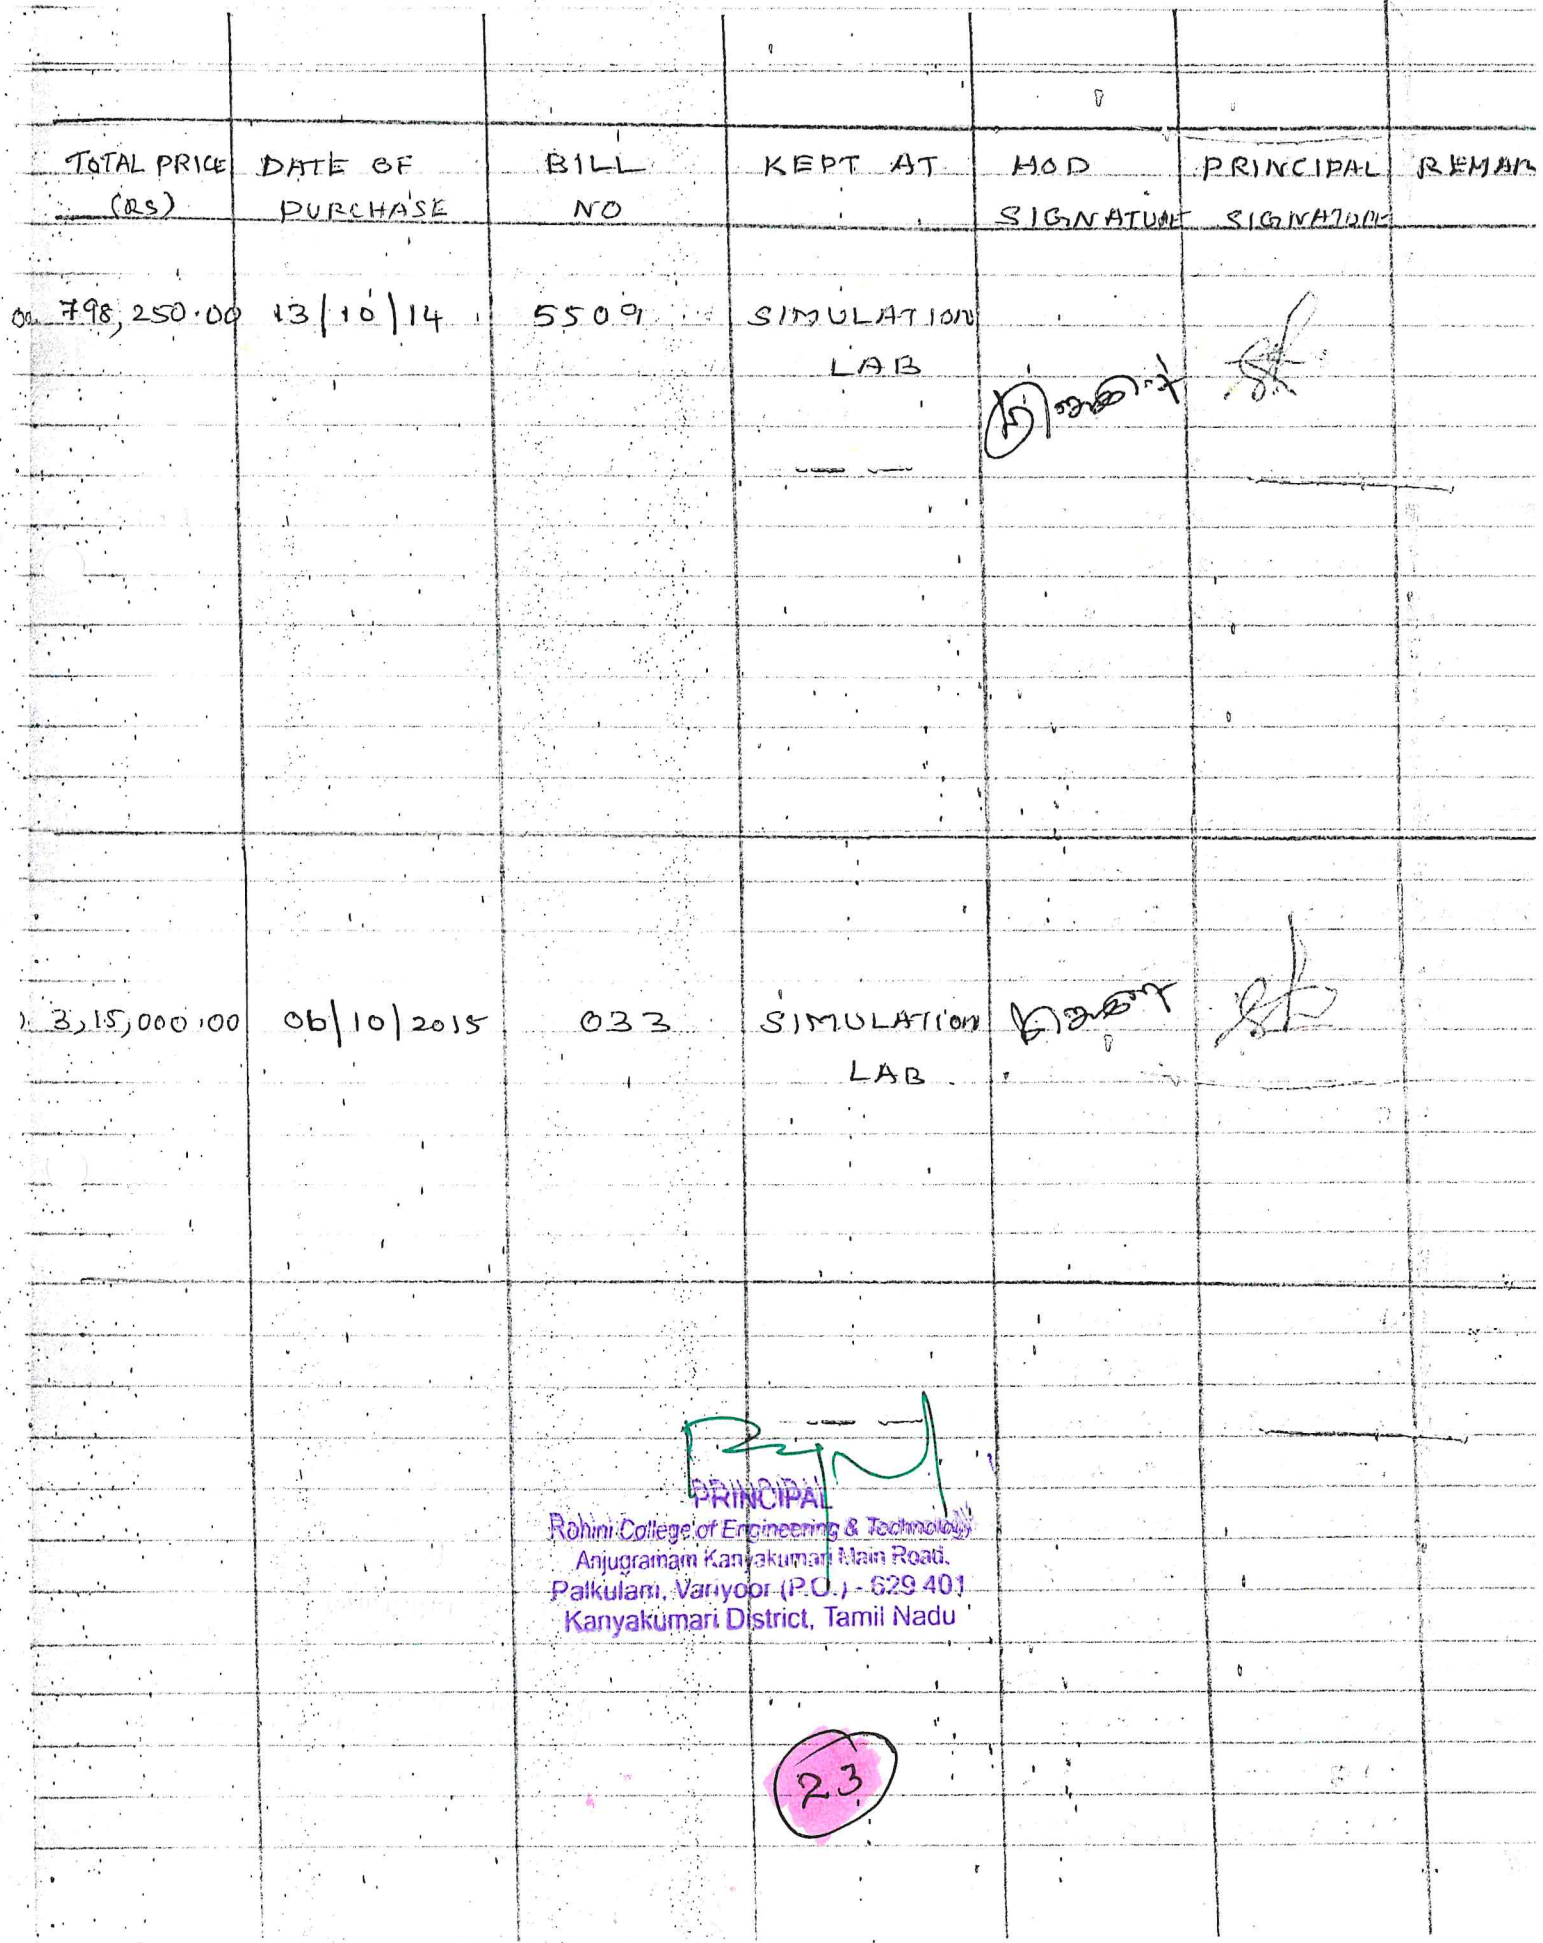 TOTAL PRICE DATE OF BILL KEPT AT HOD PRINCIPAL REMAR
(RS) PURCHASE NO SIGNATURE SIGNATURE
00 798,250.00 13/10/14 5509 SIMULATION
LAB
3,15,000.00 06/10/2015 033 SIMULATION
LAB
PRINCIPAL
Rohini College of Engineering & Technology
Anjugramam Kanyakumari Main Road,
Palkulam, Variyoor (P.O.) - 629 401
Kanyakumari District, Tamil Nadu
23